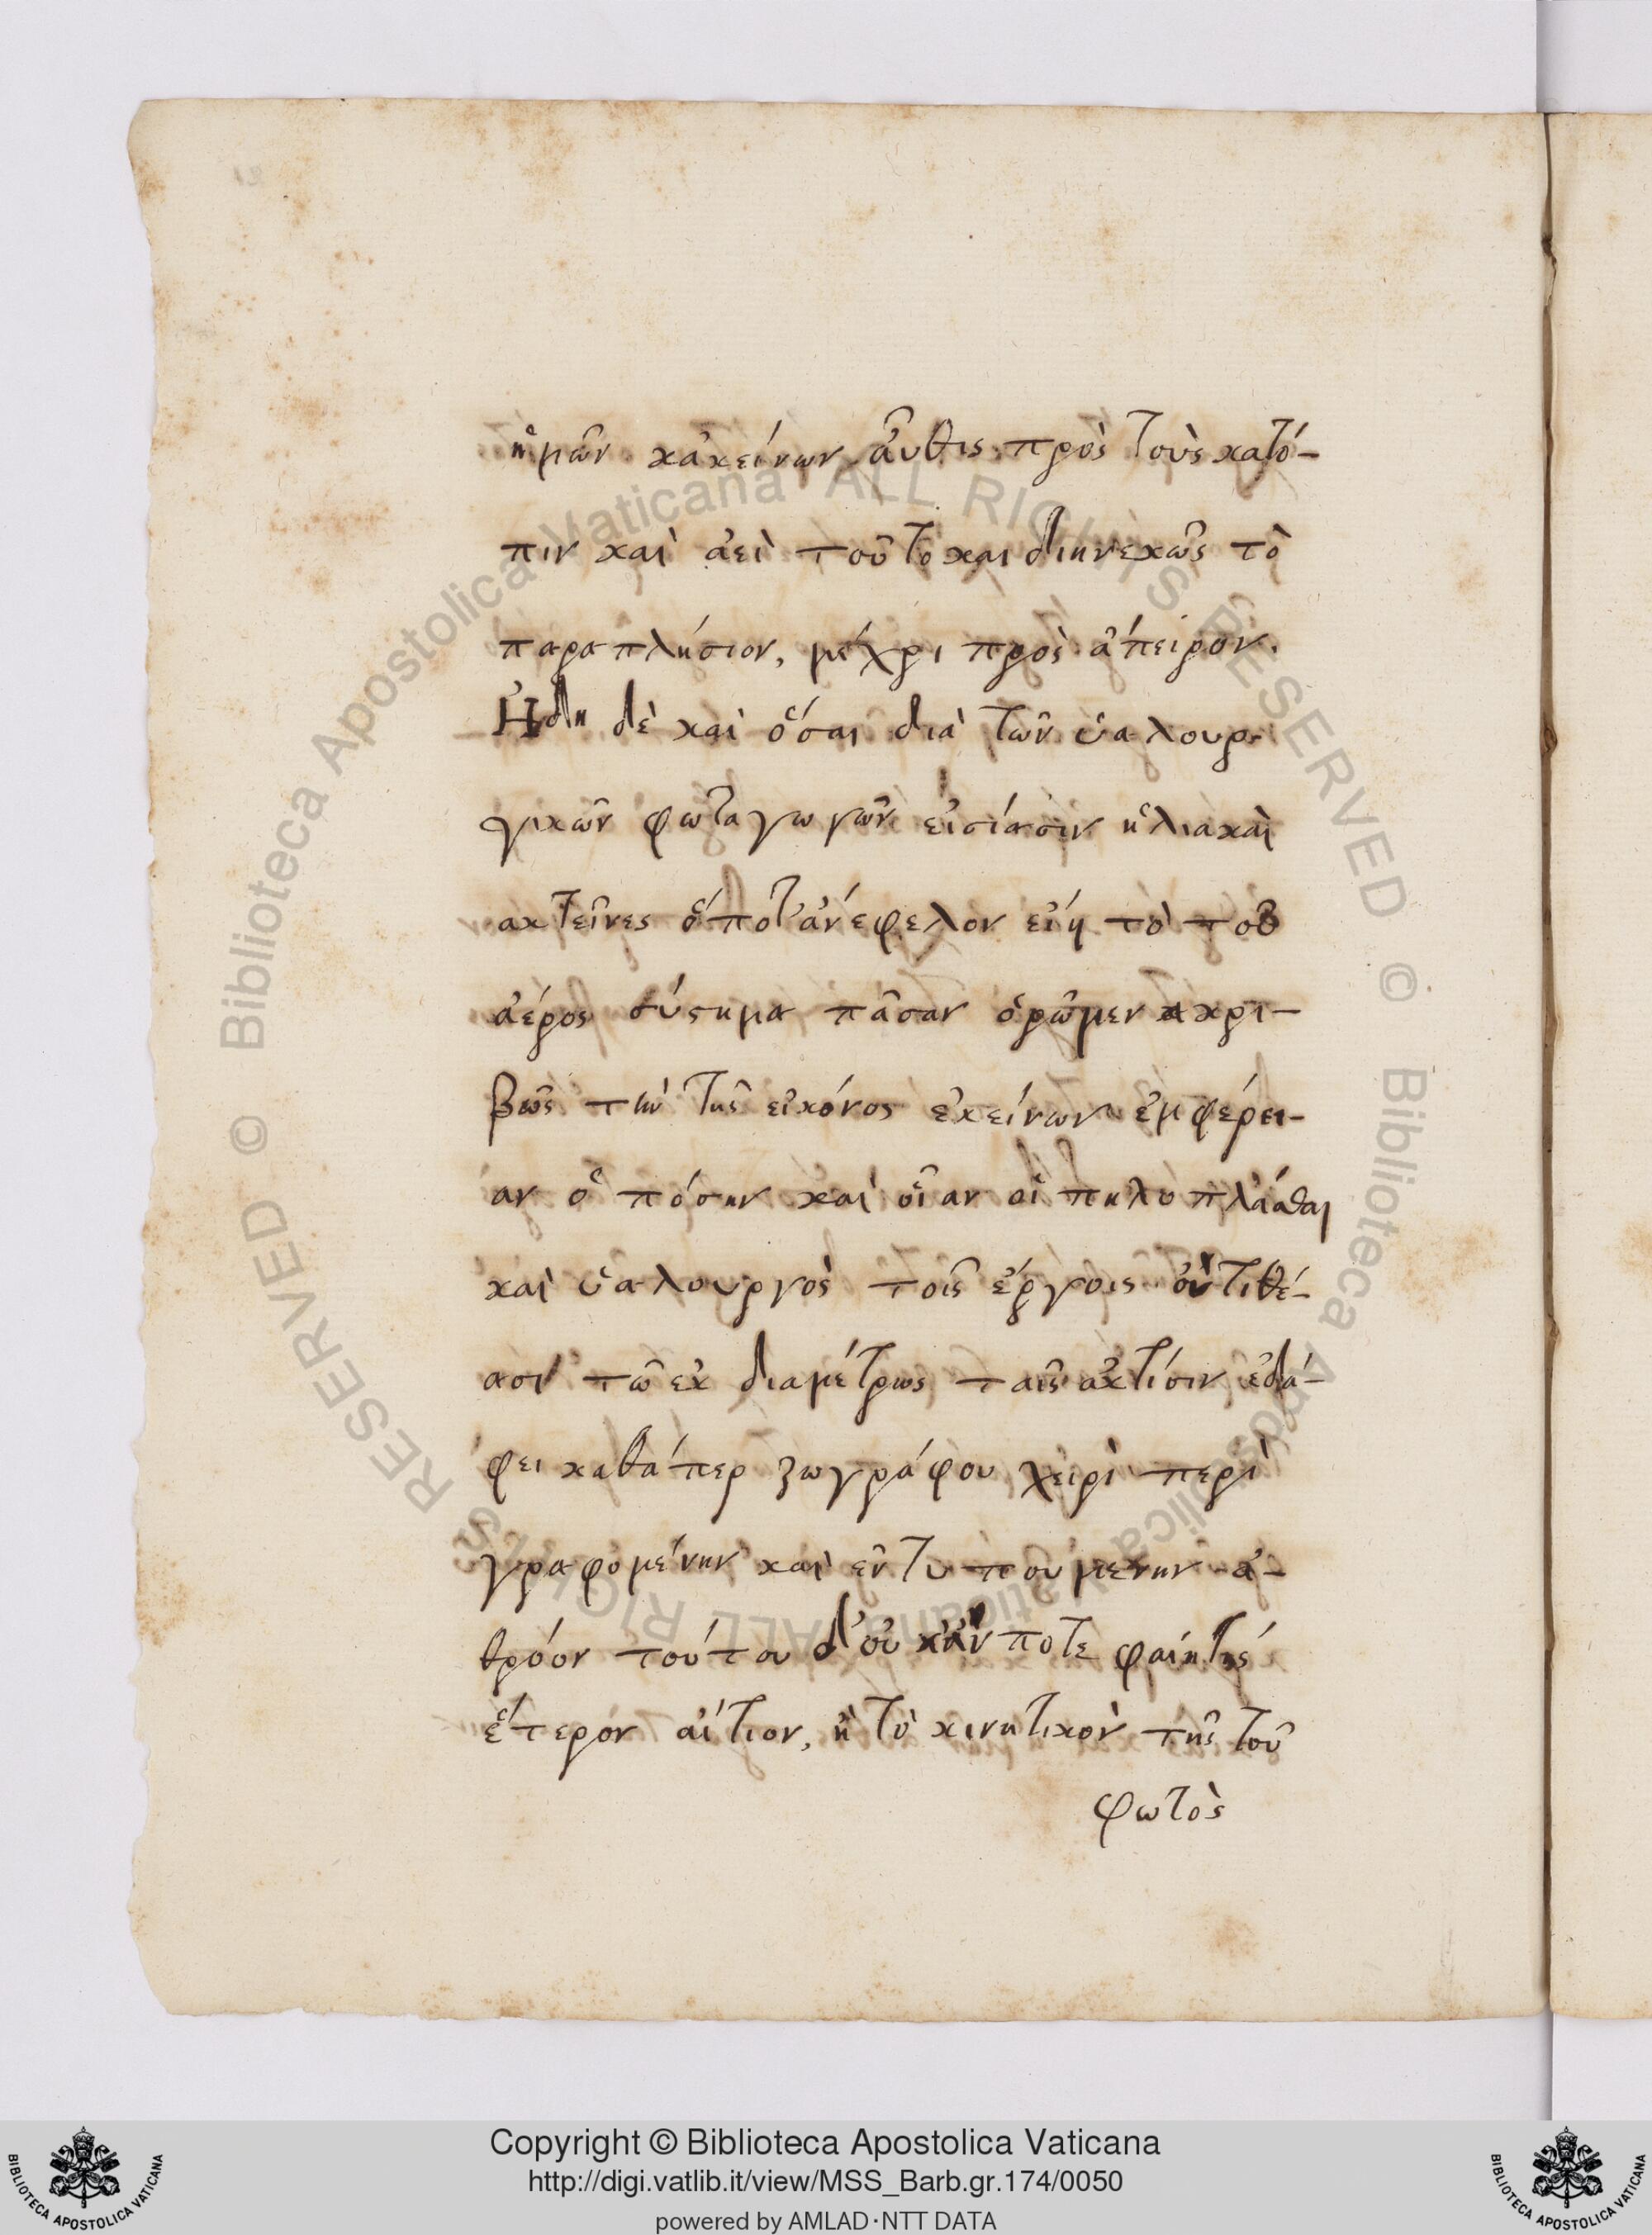 ἡμῶν κἀκείνων αὖθις πρὸς τοὺς κατό-
πιν καὶ ἀεὶ τοῦτο και διηνεκῶς τὸ
παραπλήσιον, μέχρι πρὸς ἄπειρον.
Ἤδη δὲ καὶ ὅσαι διὰ τῶν ὑαλουρ-
γικῶν φωταγωγῶν εἰσίασιν ἡλιακαὶ
ακτεῖνες ὁπότ' ἀνέφελον εἴη τὸ τοῦ
ἀέρος σύστημα πᾶσαν ὁρῶμεν ακρι-
βῶς τὴν τῆς εἰκόνος ἐκείνων ἐμφέρει-
αν ὁπόσην καὶ οἷαν οἱ πηλοπλάθαι
καὶ ὑαλουργὸς τοῖς ἔργοις ἐντιθέ-
ασι τῶ ἐκ διαμέτρως ταῖς ἀκτίσιν ἐδά-
φει καθάπερ ζωγράφου χειρὶ περὶ
γραφομένην καὶ ἐντυπουμενην ἀ-
θρόον τούτου δ' οὐκ ἄν ποτε φαίη τίς
ἕτερον αἴτιον, ἢ τὸ κινητικὸν τῆς τοῦ
φωτὸς
Copyright © Biblioteca Apostolica Vaticana
http://digi.vatlib.it/view/MSS_Barb.gr.174/0050
powered by AMLAD·NTT DATA
BIBLIOTECA APOSTOLICA VATICANA
BIBLIOTECA APOSTOLICA VATICANA
© Biblioteca Apostolica Vaticana ALL RIGHTS RESERVED © Biblioteca Apostolica Vaticana ALL RIGHTS RESERVED